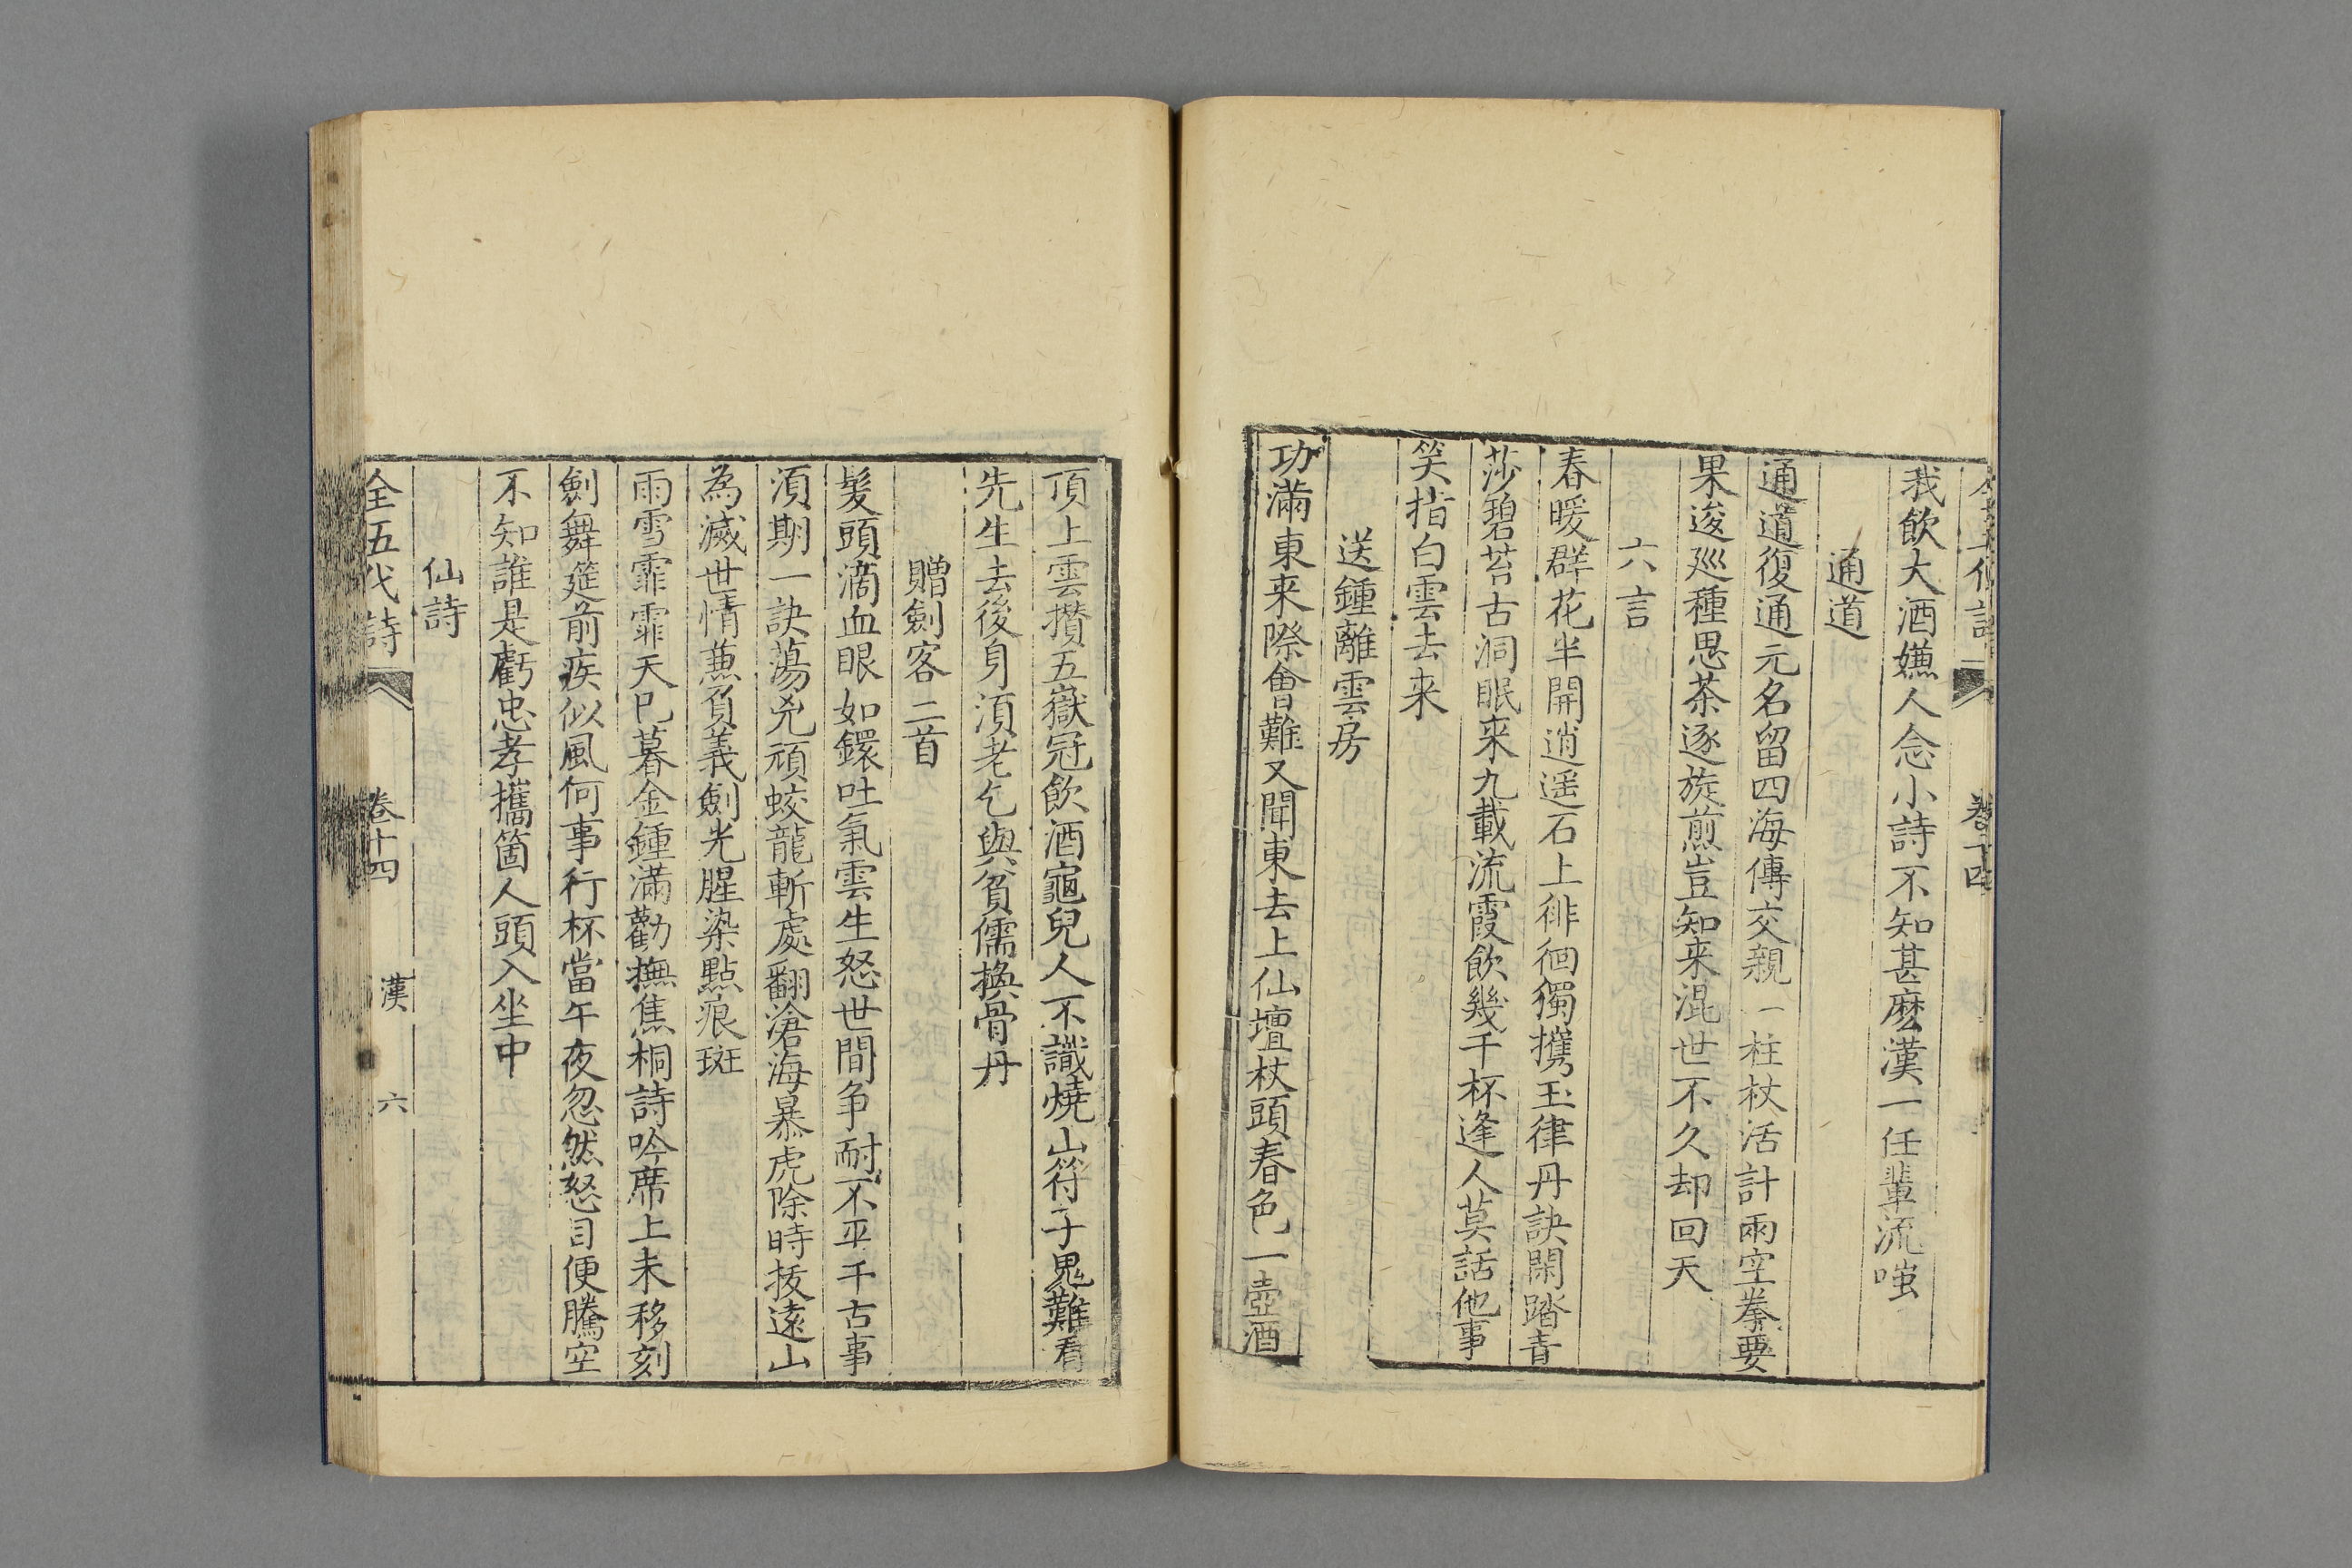 全五代詩 卷十四
我飲大酒嫌人念小詩不知甚麽漢一任輩流嗤
通道
通道復通元名留四海傳交親一柱杖活計兩空拳要
果逡廵種思茶逐旋煎豈知来混世不久却回天
六言
春暖群花半開逍遥石上徘徊獨攜玉律丹訣閑踏青
莎碧苔古洞眠来九載流霞飲幾千杯逢人莫話他事
笑指白雲去来
送鍾離雲房
功滿東来際會難又聞東去上仙壇杖頭春色一壺酒
頂上雲攢五嶽冠飲酒龜兒人不識燒山符子鬼難看
先生去後身湏老乞與貧儒換骨丹
贈劍客二首
髮頭滴血眼如鐶吐氣雲生怒世間争耐不平千古事
湏期一訣蕩兇頑蛟龍斬處翻滄海暴虎除時拔遠山
為滅世情蕪負義劍光腥染點痕斑
雨雪霏霏天已暮金鍾滿勸撫焦桐詩吟席上未移刻
劍舞筵前疾似風何事行杯當午夜忽然怒目便騰空
不知誰是虧忠孝攜箇人頭入坐中
仙詩
全五代詩 卷十四 漢 六